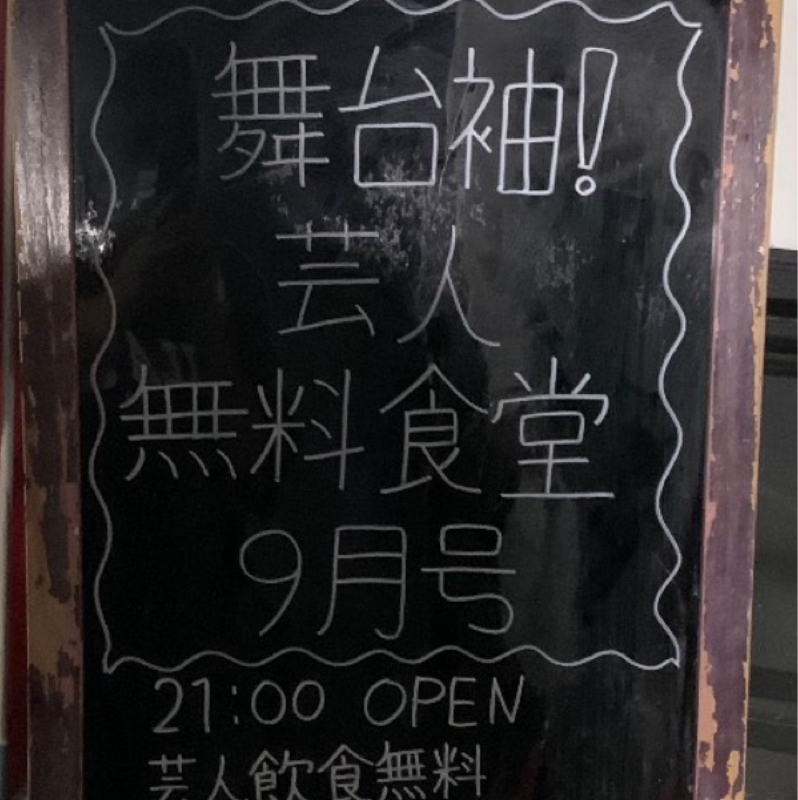 舞台袖!
芸人
無料食堂
9月号
21:00 OPEN
芸人飲食無料